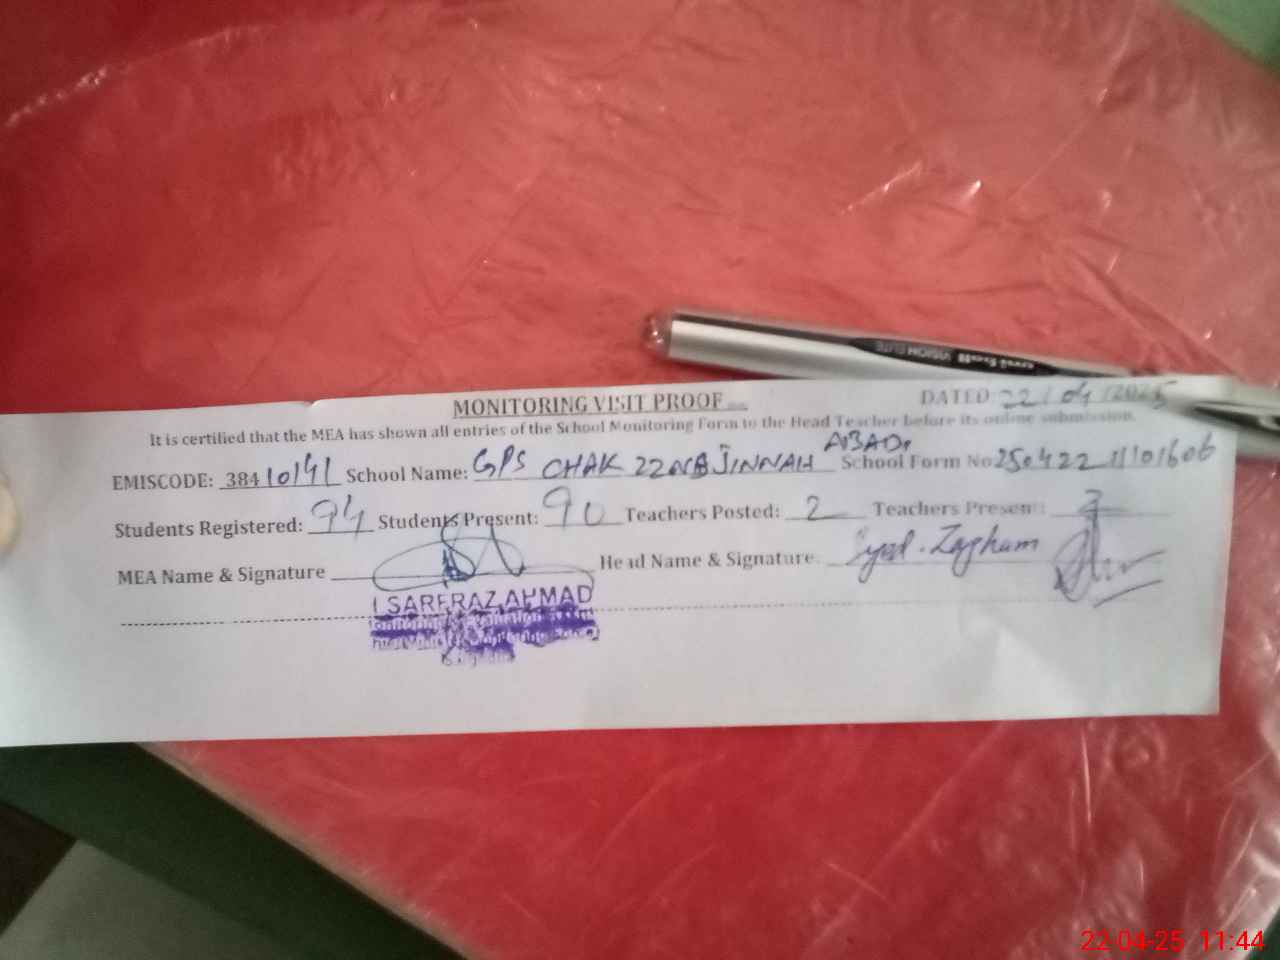 uni-ball VISION ELITE
MONITORING VISIT PROOF
DATED 22/04/2025
It is certified that the MEA has shown all entries of the School Monitoring Form to the Head Teacher before its online submission.
EMISCODE: 38410141 School Name: GPS CHAK 22NB JINNAH ABAD. School Form No 250422
Students Registered: 94 Students Present: 90 Teachers Posted: 2 Teachers Present:
MEA Name & Signature Head Name & Signature: Syed. Zagham
SARFRAZ AHMAD
22-04-25 11:44